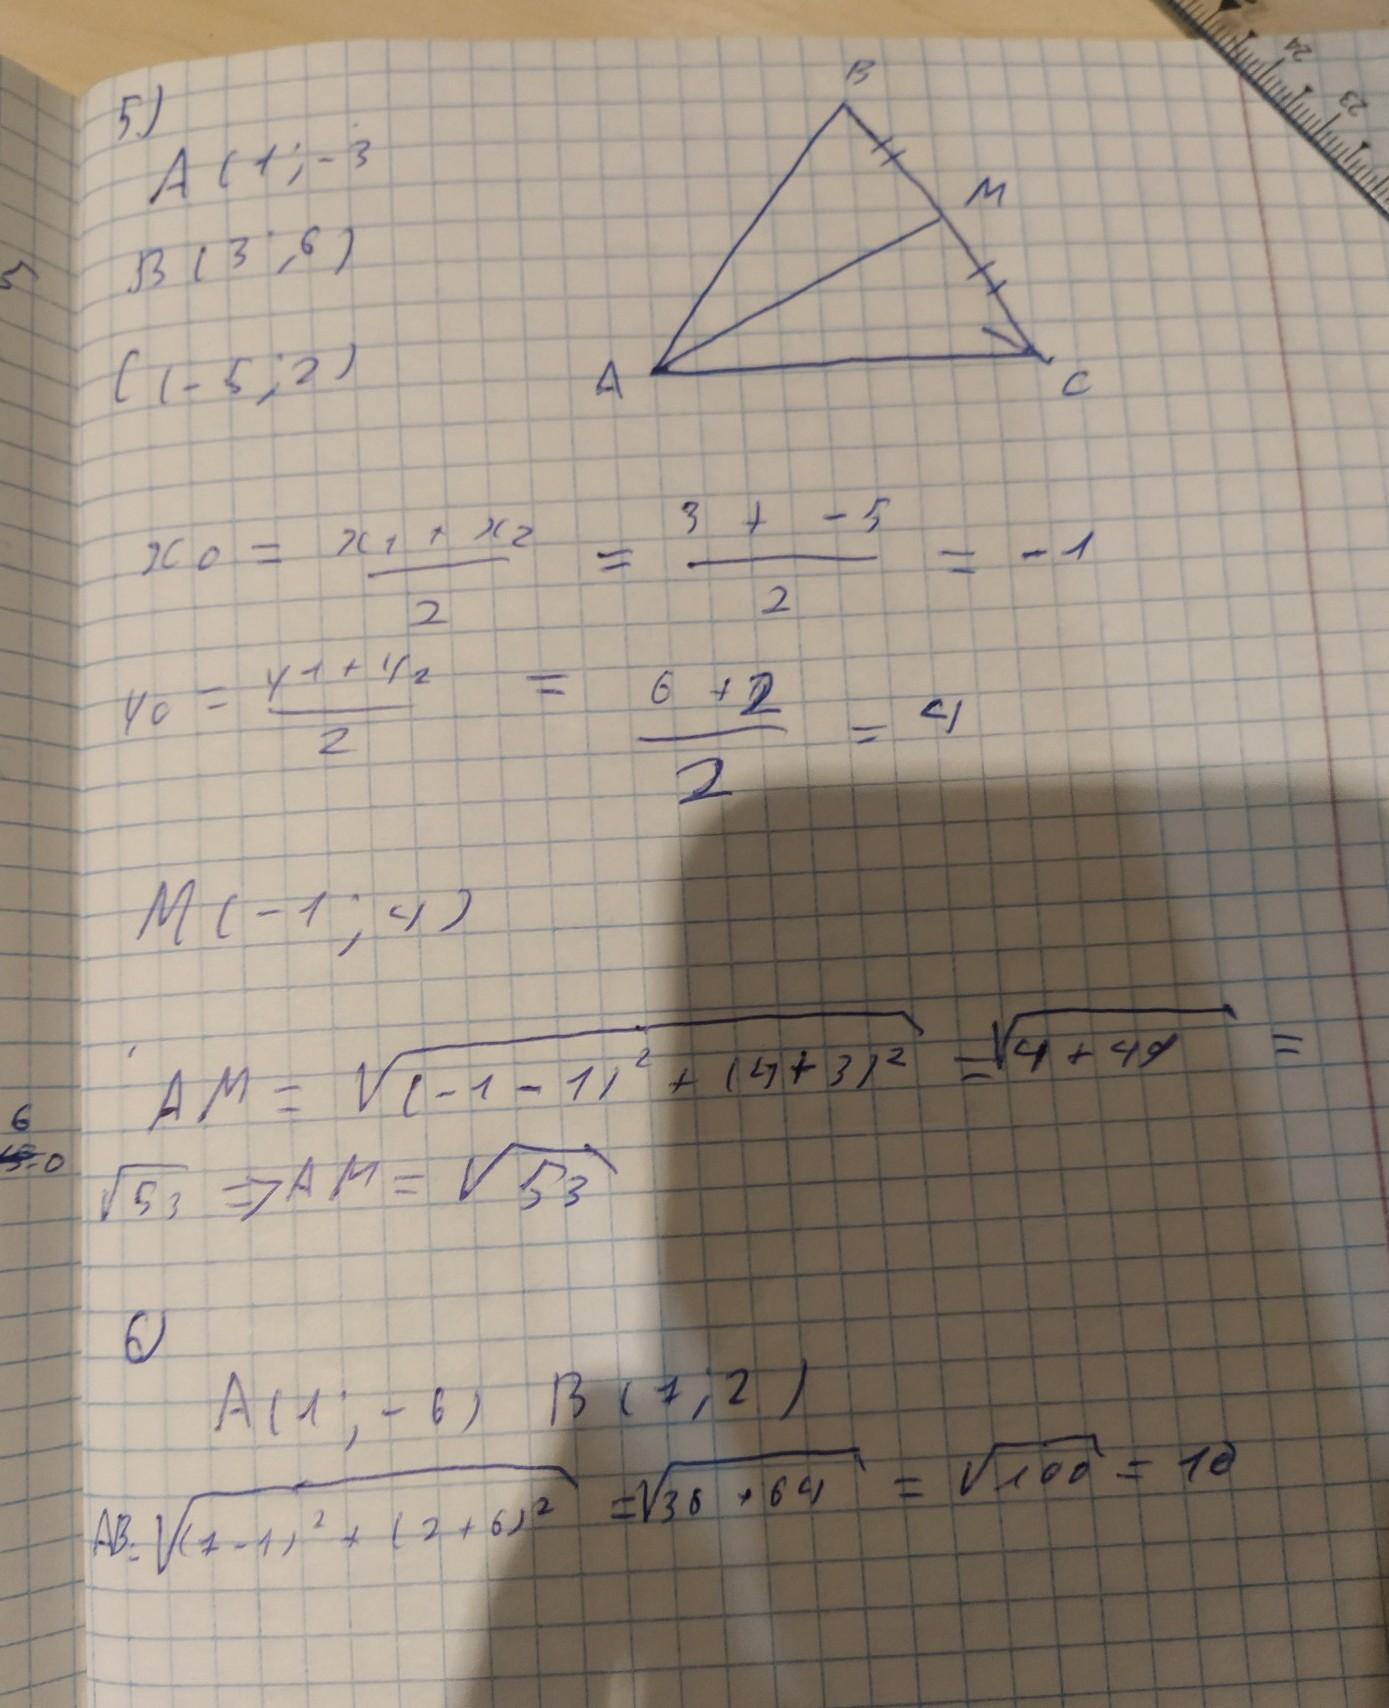 5)
A(1;-3
B(3;6)
C(-5;2)
B
M
A
C
x0 = x1+x2/2 = 3+-5/2 = -1
y0 = y1+y2/2 = 6+2/2 = 4
M(-1;4)
AM = √(-1-1)²+(4+3)² = √4+49 =
√53 => AM = √53
6)
A(1;-6) B(7;2)
AB= √(7-1)²+(2+6)² = √36+64 = √100 = 10
24
23
5
6